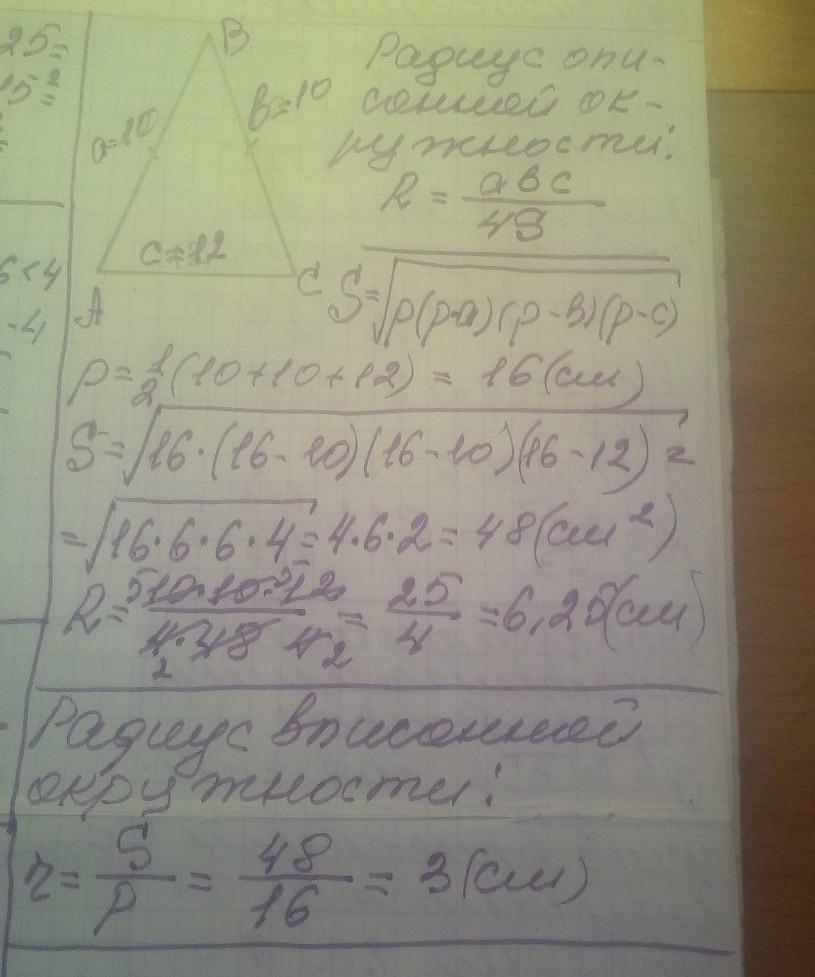 25=
15²=
B
a=10
b=10
c=12
A
C
Радиус опи-
санной ок-
ружности:
R = abc/4S
S=√p(p-a)(p-b)(p-c)
6<4
-4
p=½(10+10+12) = 16(см)
S=√16·(16-10)(16-10)(16-12) =
=√16·6·6·4=4·6·2=48(см²)
R= 5 10·10·5 12/4·48 4 2 2 = 25/4 =6,25(см)
Радиус вписанной
окружности:
r= S/p = 48/16 = 3(см)